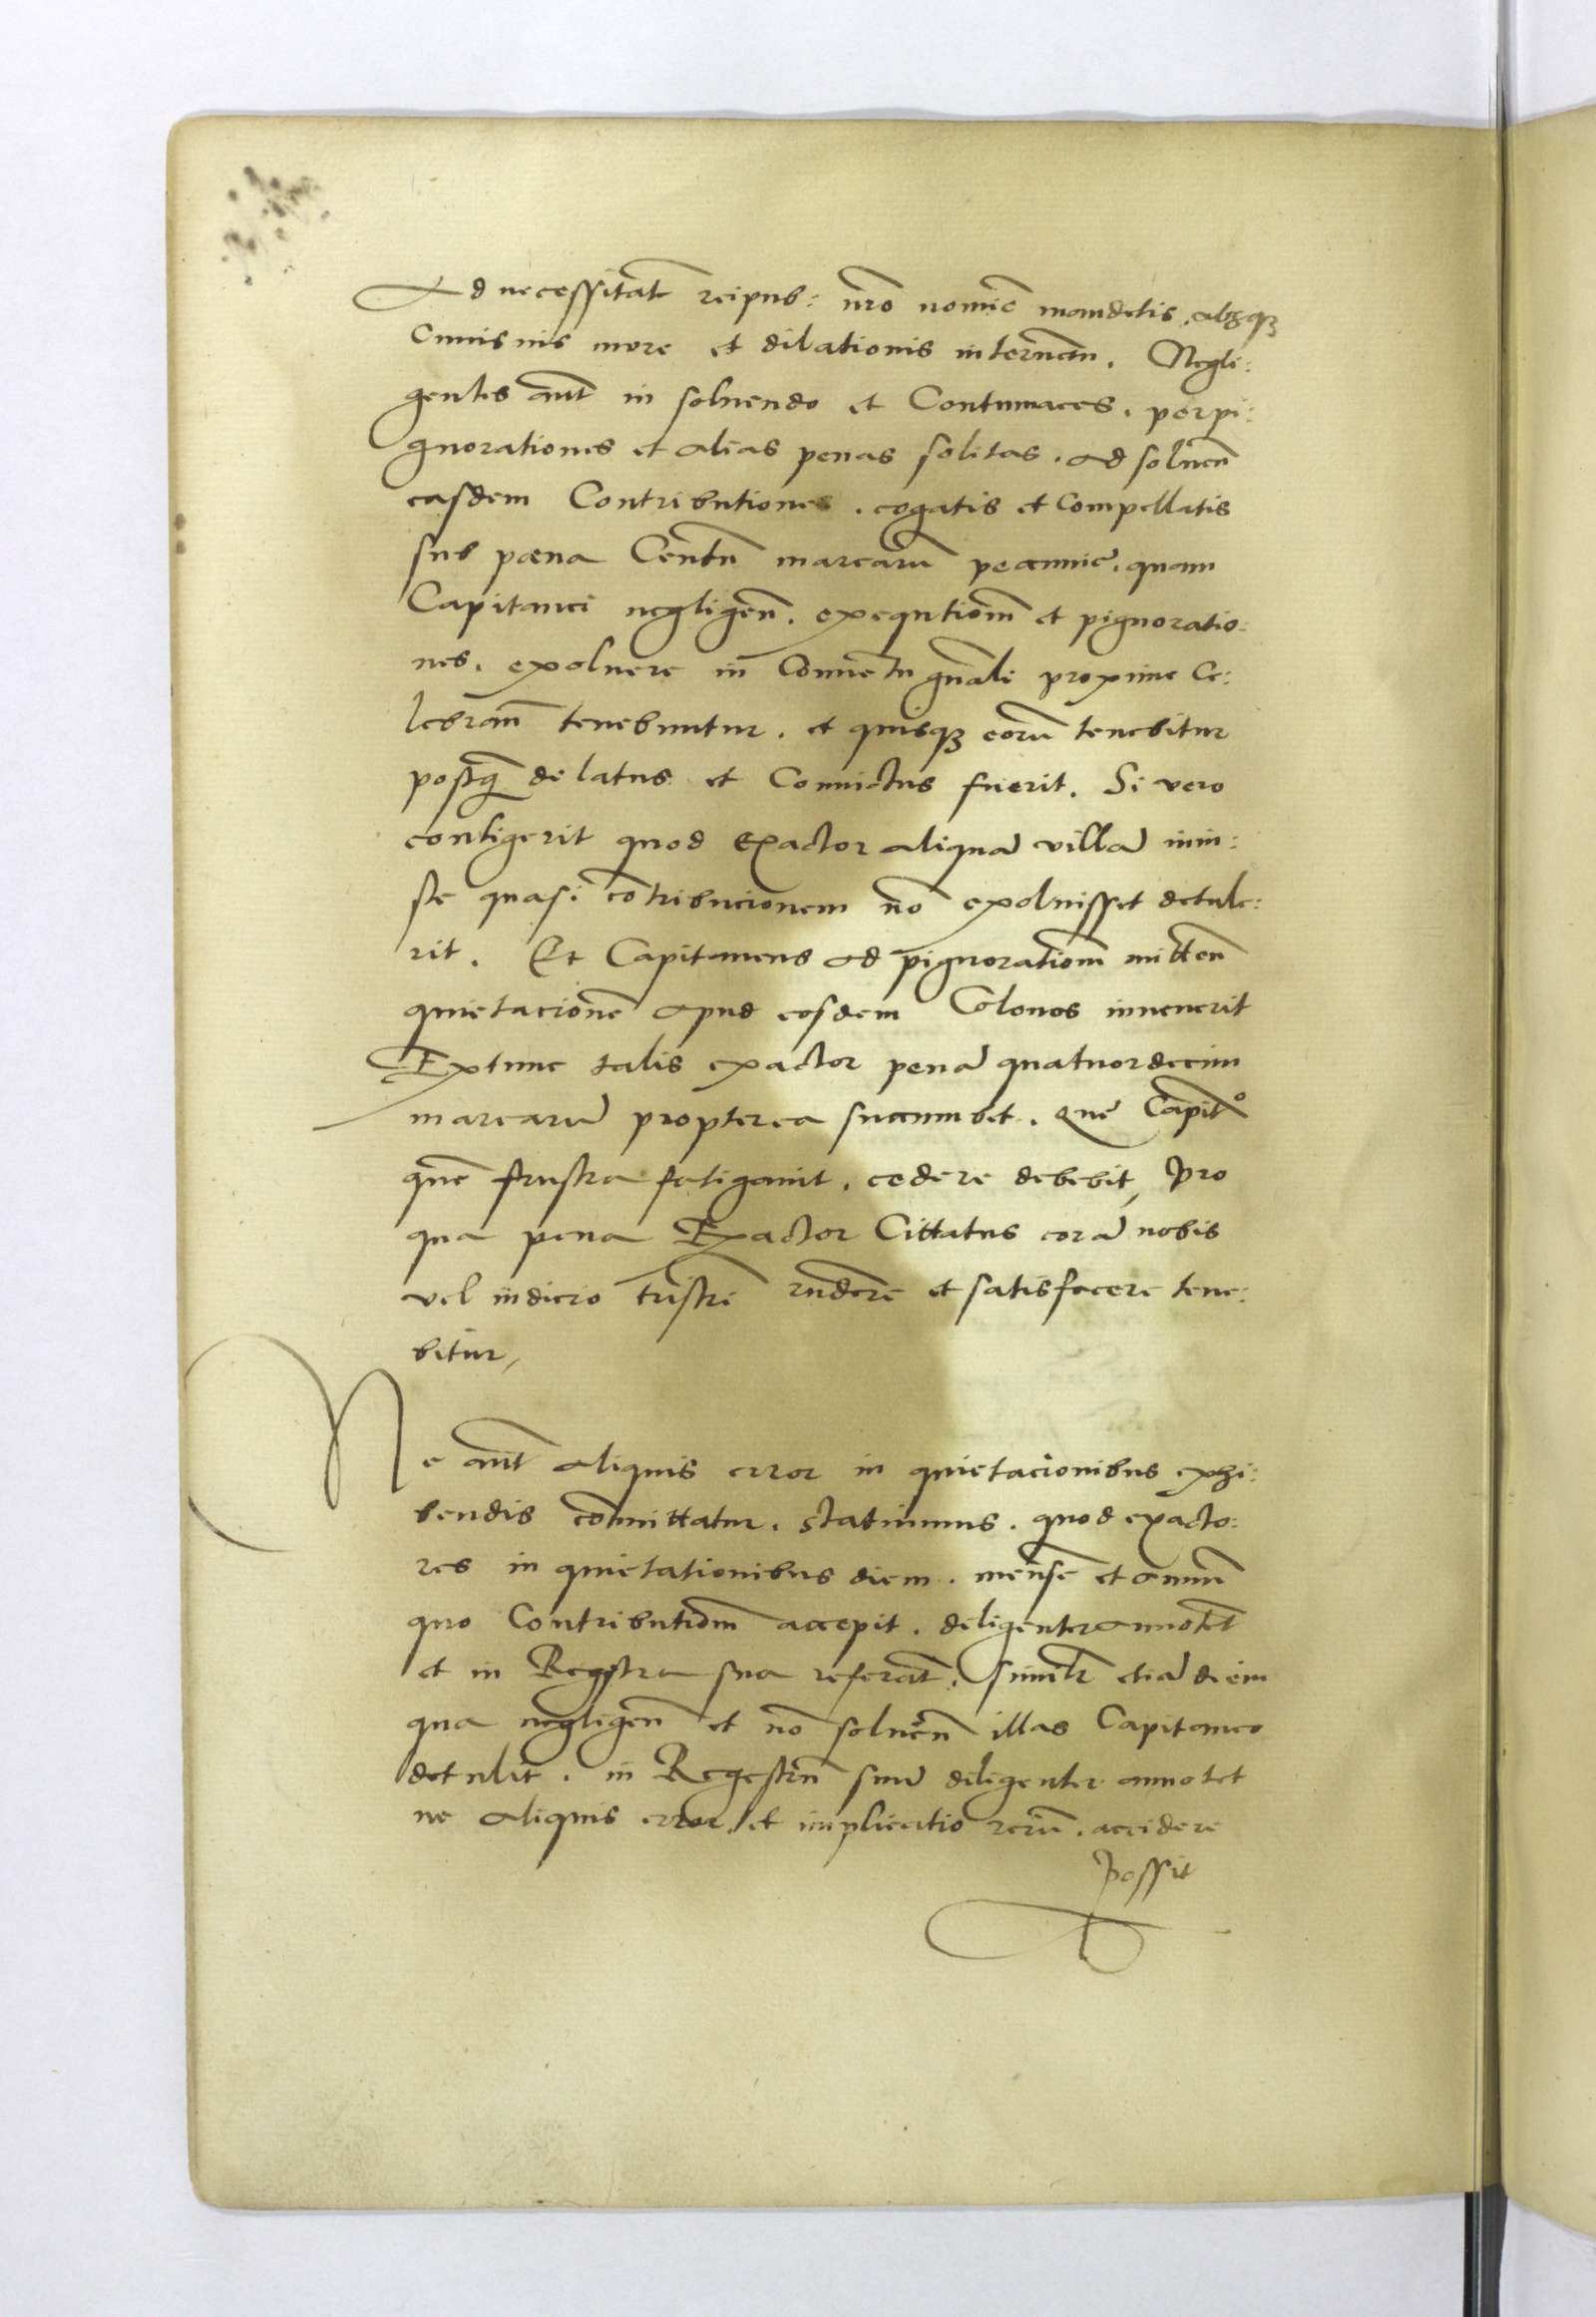 Ad necessitatẽ reipub: nr̃o nomĩe mandetis, absqꝫ
cuiusuis more et dilationis interuẽtu. Negli:
gentes aũt in soluendo et Contumaces. per pi:
gnorationes et alias penas solitas. ad soluẽn
easdem Contributiones. cogatis et Compellatis
sub pœna Centũ marcarũ pecunie. quam
Capitanei negligeñ. exequtiõm et pignoratio:
nes. exoluere in Conuẽtu gñali proxime Ce:
lebrañ tenebuntur. et quisqꝫ eorũ tenebitur
postq̃ delatus et Conuictus fuerit. Si vero
contigerit quod Exactor aliquã villã iniu:
ste quasi cõtribucionem nõ exoluisset detule:
rit. Et Capitaneus ad pignoratiõm mitteñ
quietacionẽ apud eosdem Colonos inuenerit
Extunc talis exactor penã quatuordecim
marcarũ propterea succumbet. Que Capit°
quẽ frustra fatigauit. cedere debebit, Pro
qua pena Exactor Cittatus corã nobis
vel iudicio trr̃stri rñdere et satisfacere tene:
bitur,
Ne aũt aliquis error in quietacionibus exhi:
bendis cõmittatur. statuimus. quod exacto:
res in quietationibus diem. mensẽ et annũ
quo Contributiõm accepit. diligenter annotẽt
et in Regestra sua referãt. similr̃ etiã diem
qua negligeñ et nõ solueñ illas Capitaneo
detulit. in Regestrũ suũ diligenter annotet
ne aliquis error. et implicatio rerũ. accidere
possit